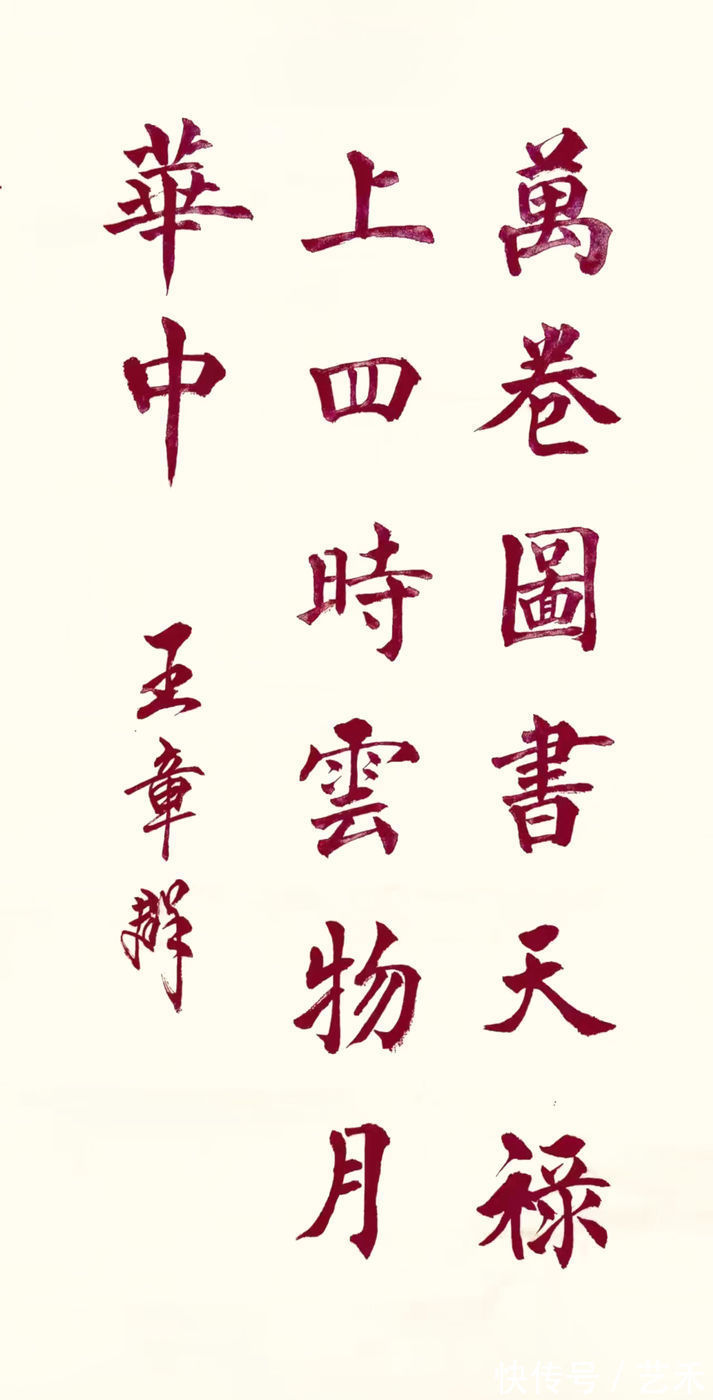 萬卷圖書天禄
上四時雲物月
華中
王章群
快传号 / 艺禾